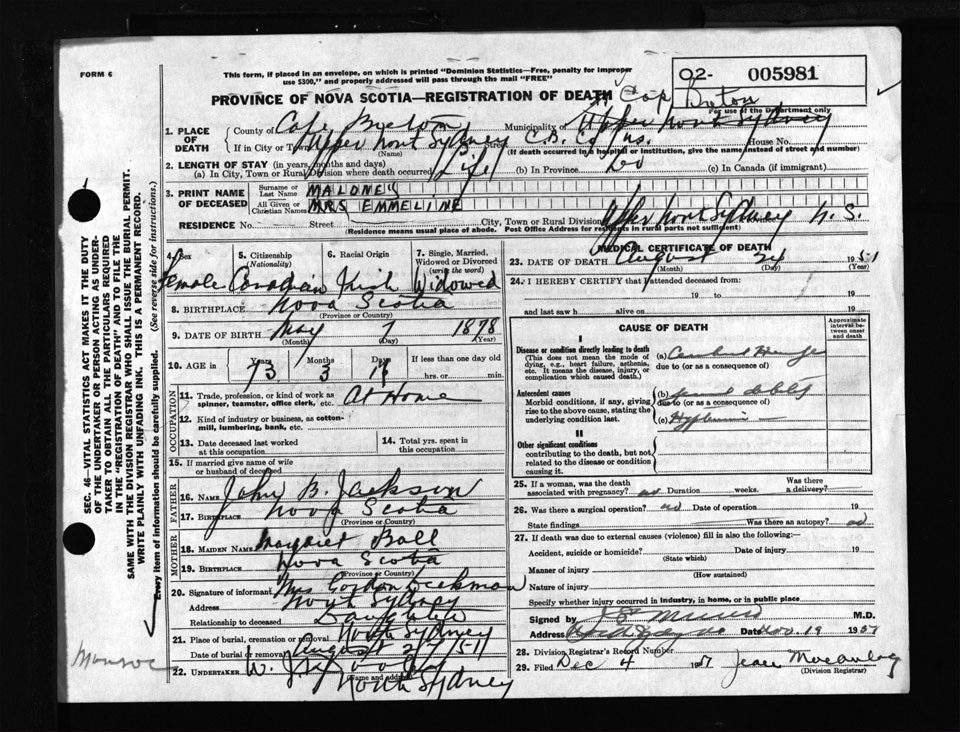 FORM 6
This form, if placed in an envelope, on which is printed "Dominion Statistics—Free, penalty for improper
use $300," and properly addressed will pass through the mail "FREE"
02- 005981
For use of the Department only
PROVINCE OF NOVA SCOTIA—REGISTRATION OF DEATH
Cape Breton
1. PLACE OF DEATH
County of Cape Breton Municipality of Upper North Sydney
If in City or Town Upper North Sydney C.B. Street House No.
(Name) (If death occurred in a hospital or institution, give the name instead of street and number)
2. LENGTH OF STAY (in years, months and days)
(a) In City, Town or Rural Division where death occurred Life (b) In Province Do (c) In Canada (if immigrant)
3. PRINT NAME OF DECEASED
Surname or Last Name MALONEY
All Given or Christian Names MRS EMMELINE
RESIDENCE No. Street City, Town or Rural Division Upper North Sydney N.S.
(Residence means usual place of abode. Post Office Address for residents in rural parts not sufficient)
4. Sex 5. Citizenship (Nationality) 6. Racial Origin 7. Single, Married, Widowed or Divorced (write the word)
Female Canadian Irish Widowed
8. BIRTHPLACE Nova Scotia
(Province or Country)
9. DATE OF BIRTH May 7 1878
(Month) (Day) (Year)
10. AGE in Years Months Days If less than one day old
73 3 hrs. or min.
OCCUPATION
11. Trade, profession, or kind of work as spinner, teamster, office clerk, etc. At Home
12. Kind of industry or business, as cotton-mill, lumbering, bank, etc.
13. Date deceased last worked at this occupation
14. Total yrs. spent in this occupation
15. If married give name of wife or husband of deceased
FATHER
16. NAME John B. Jackson
17. BIRTHPLACE Nova Scotia
(Province or Country)
MOTHER
18. MAIDEN NAME Margaret Ball
19. BIRTHPLACE Nova Scotia
(Province or Country)
20. Signature of informant Mrs Gordon
Address North Sydney
Relationship to deceased Daughter
21. Place of burial, cremation or removal North Sydney
Date of burial or removal August
22. UNDERTAKER W. J.
(Name and address)
North Sydney
MEDICAL CERTIFICATE OF DEATH
23. DATE OF DEATH August 24 1951
(Month) (Day) (Year)
24. I HEREBY CERTIFY that I attended deceased from:
19 to 19
and last saw h alive on 19
CAUSE OF DEATH
Approximate interval between onset and death
I
Disease or condition directly leading to death (a)
(This does not mean the mode of dying, e.g., heart failure, asthenia, etc. It means the disease, injury, or complication which caused death.)
due to (or as a consequence of)
Antecedent causes (b)
Morbid conditions, if any, giving rise to the above cause, stating the underlying condition last.
due to (or as a consequence of)
(c)
II
Other significant conditions
contributing to the death, but not related to the disease or condition causing it.
25. If a woman, was the death associated with pregnancy? no Duration weeks. Was there a delivery?
26. Was there a surgical operation? no Date of operation 19
State findings Was there an autopsy? no
27. If death was due to external causes (violence) fill in also the following:
Accident, suicide or homicide? Date of injury 19
(State which)
Manner of injury
(How sustained)
Nature of injury
Specify whether injury occurred in industry, in home, or in public place
Signed by M.D.
Address Date Nov. 19 1951
28. Division Registrar's Record Number
29. Filed Dec 4 1951 Jean
(Division Registrar)
SEC. 46—VITAL STATISTICS ACT MAKES IT THE DUTY
OF THE UNDERTAKER OR PERSON ACTING AS UNDER-
TAKER TO OBTAIN ALL THE PARTICULARS REQUIRED
IN THE "REGISTRATION OF DEATH" AND TO FILE THE
SAME WITH THE DIVISION REGISTRAR WHO SHALL ISSUE THE BURIAL PERMIT.
WRITE PLAINLY WITH UNFADING INK. THIS IS A PERMANENT RECORD.
Every item of information should be carefully supplied. (See reverse side for instructions.)
Munroe